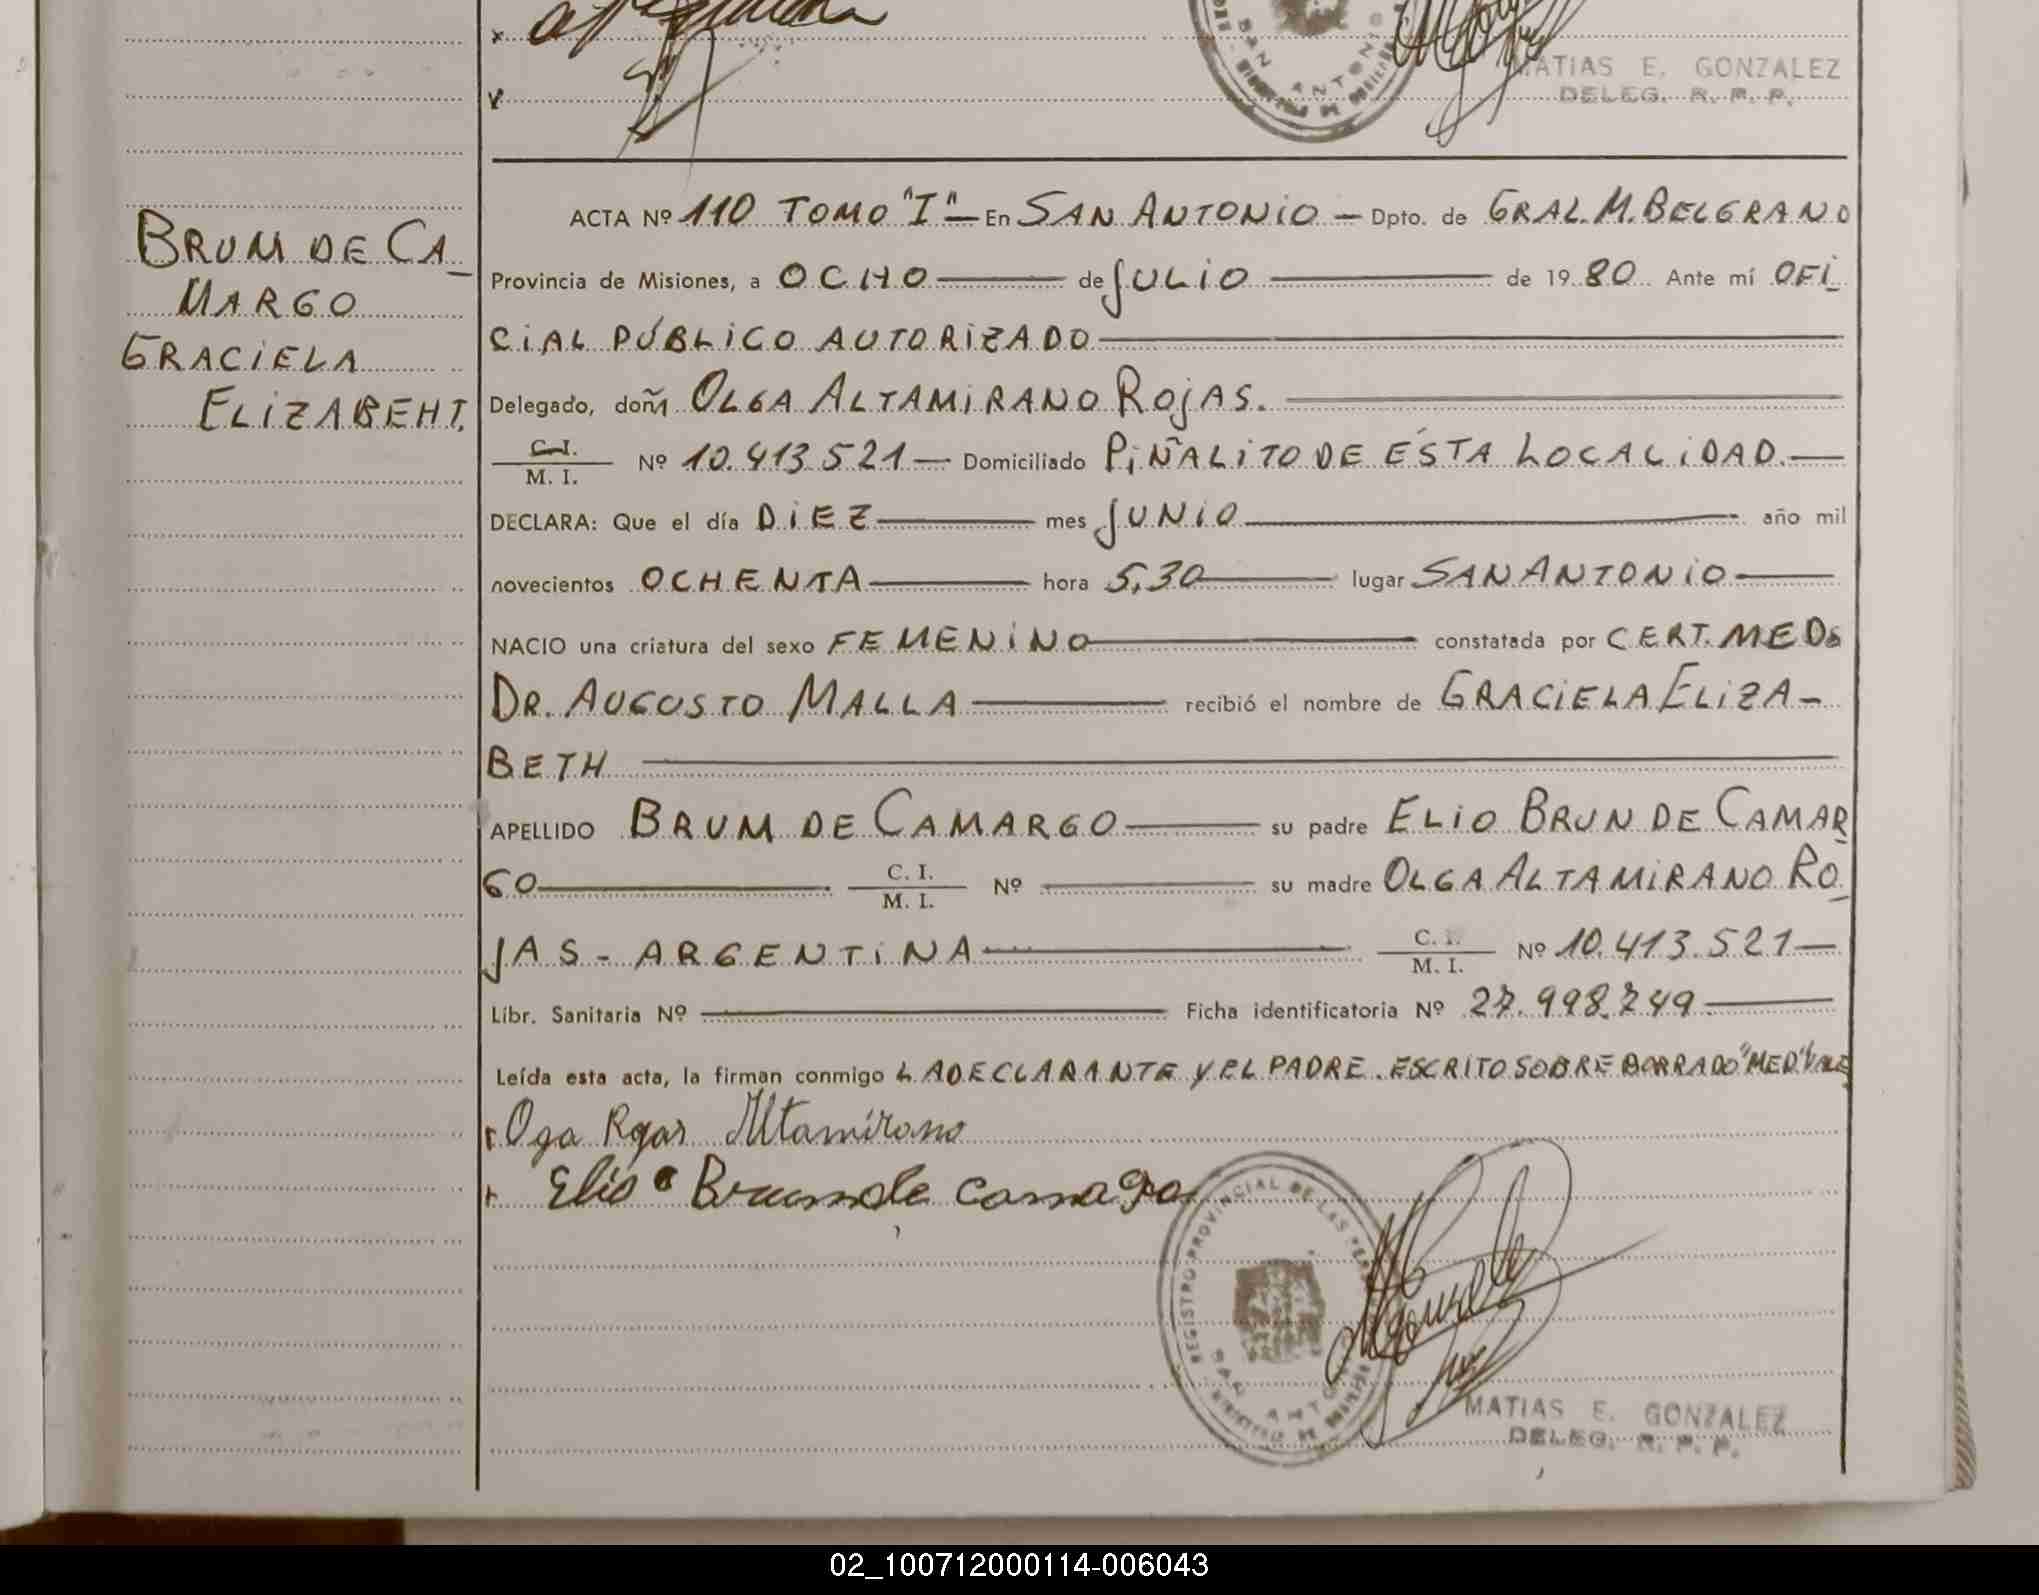 MATIAS E. GONZALEZ
DELEG. R. P. P.
BRUM DE CA_
MARGO
GRACIELA
ELIZABEHT.
ACTA Nº 110 TOMO "I"— En SAN ANTONIO — Dpto. de GRAL. M. BELGRANO
Provincia de Misiones, a OCHO de JULIO de 1980 Ante mí OFI_
CIAL PÚBLICO AUTORIZADO
Delegado, doña OLGA ALTAMIRANO ROJAS.
C. I.
M. I. Nº 10.413.521 — Domiciliado PIÑALITO DE ÉSTA LOCALIDAD.—
DECLARA: Que el día DIEZ mes JUNIO año mil
novecientos OCHENTA hora 5,30 lugar SAN ANTONIO —
NACIO una criatura del sexo FEMENINO constatada por CERT. MED.
DR. AUGUSTO MALLA recibió el nombre de GRACIELA ELIZA-
BETH
APELLIDO BRUM DE CAMARGO su padre ELIO BRUN DE CAMAR_
GO C. I.
M. I. Nº su madre OLGA ALTAMIRANO RO_
JAS - ARGENTINA C. I.
M. I. Nº 10.413.521—
Libr. Sanitaria Nº Ficha identificatoria Nº 27.998.749
Leída esta acta, la firman conmigo LA DECLARANTE Y EL PADRE. ESCRITO SOBRE BORRADO "MED" VALE
Oga Rojas Altamirano
Elio Brum de Camago
REGISTRO PROVINCIAL DE LAS PERSONAS
SAN ANTONIO
MATIAS E. GONZALEZ
DELEG. R. P. P.
02_100712000114-006043